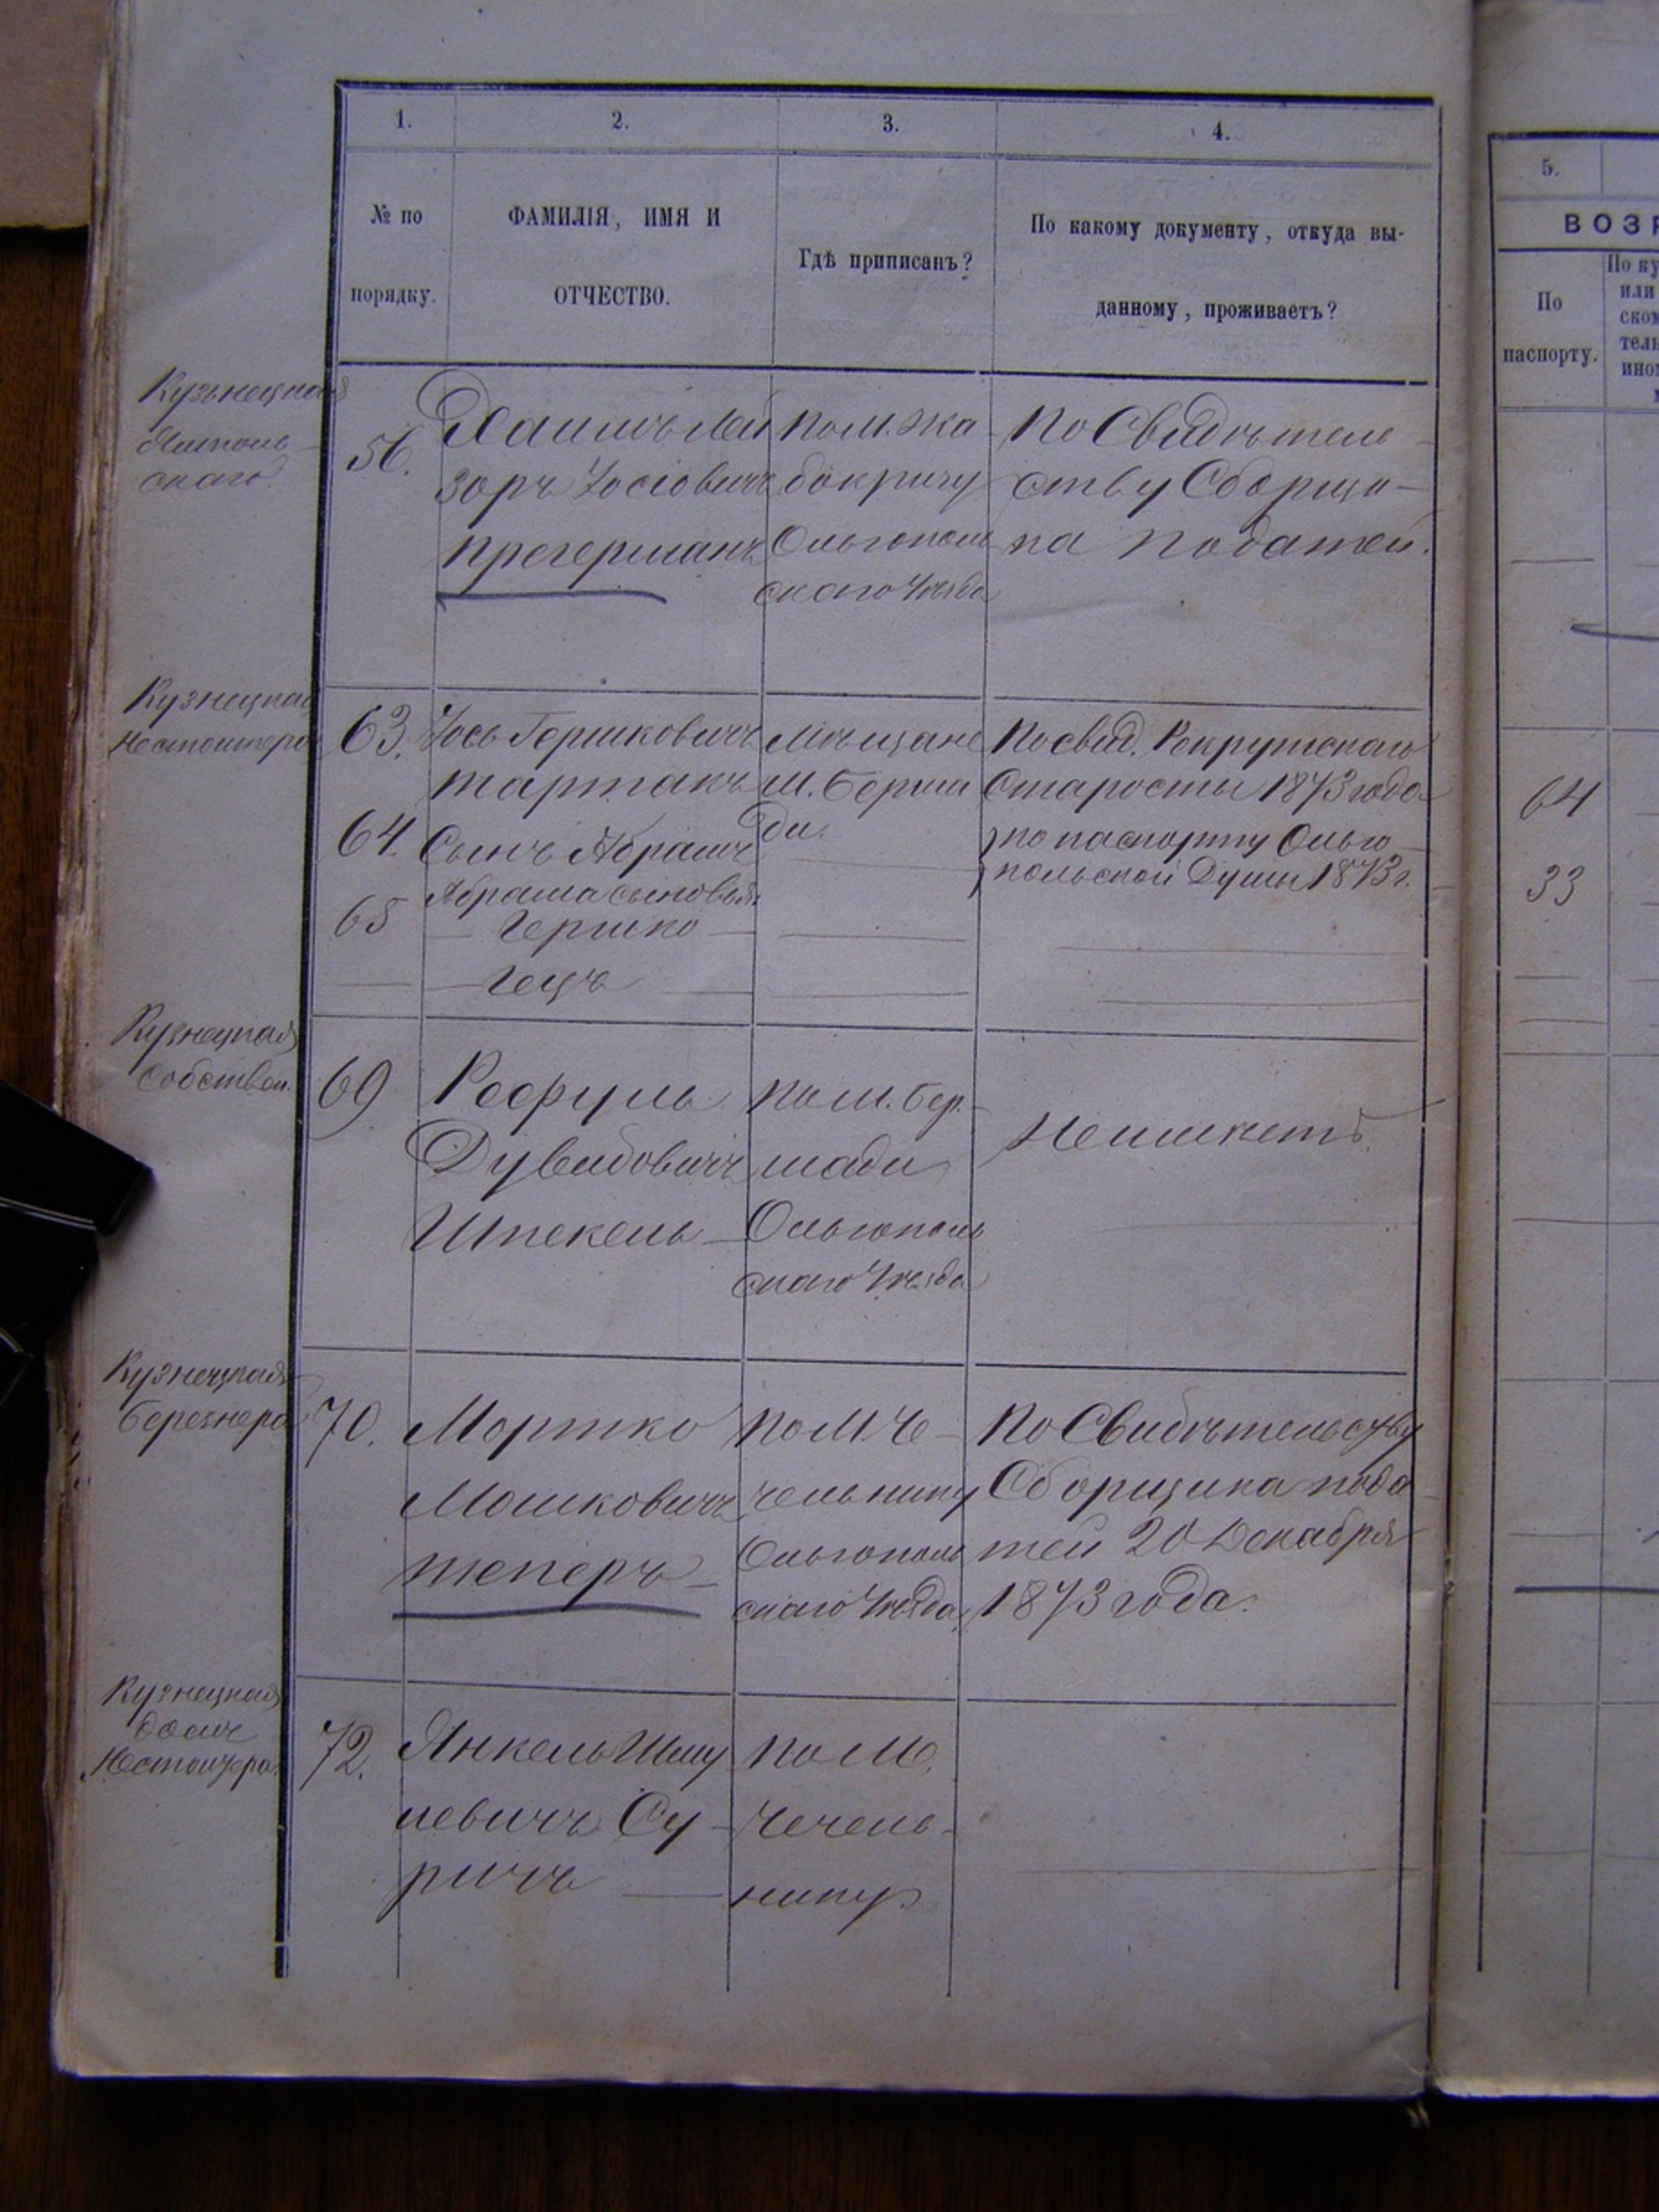 1.
2.
3.
4.
№ по
порядку.
ФАМИЛІЯ, ИМЯ И
ОТЧЕСТВО.
Гдѣ приписанъ?
По какому документу, откуда вы-
данному, проживаетъ?
5.
ВОЗР
По
паспорту.
По ку
или
ском
тель
ино
Кузнецкая
скаго
56.
Хаимъ Лей
зоръ Іосіовичъ
Прегерманъ
по м. Жа
бокричу
Ольгополь
скаго Уѣзда
По Свидѣтель
ству Сборщи-
ка податей.
Кузнецкая
63.
Іось Гершковичъ
Тартакъ
Мѣщане
м. Берша
ди.
По свид. Рекрутскаго
Старосты 1873 года
64
64.
Сынъ Абрамъ
по паспорту Ольго
польской Думы 1873 г.
33
Абрама сыновья:
65
Гершко
Гецъ
Кузнецкая
Собствен.
69
Рефуль
Дувидовичъ
Штекель
по м. Бер-
шади
Ольгополь
скаго Уѣзда
Неимѣетъ.
Кузнецкая
Березнера
70.
Мортко
Мошковичъ
Теперъ
по м. Че-
чельнику
Ольгополь
скаго Уѣзда,
По Свидѣтельству
Сборщика пода
тей 20 Декабря
1873 года.
Кузнецкая
домъ
72.
Янкель Шму
левичъ Су-
ричъ
по м.
Чечель-
нику